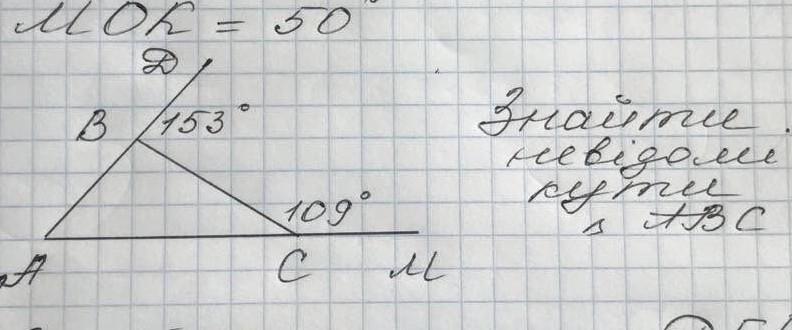 МОК = 50°
D
B 153°
109°
A C М
Знайти
невідомі
кути
△ ABC